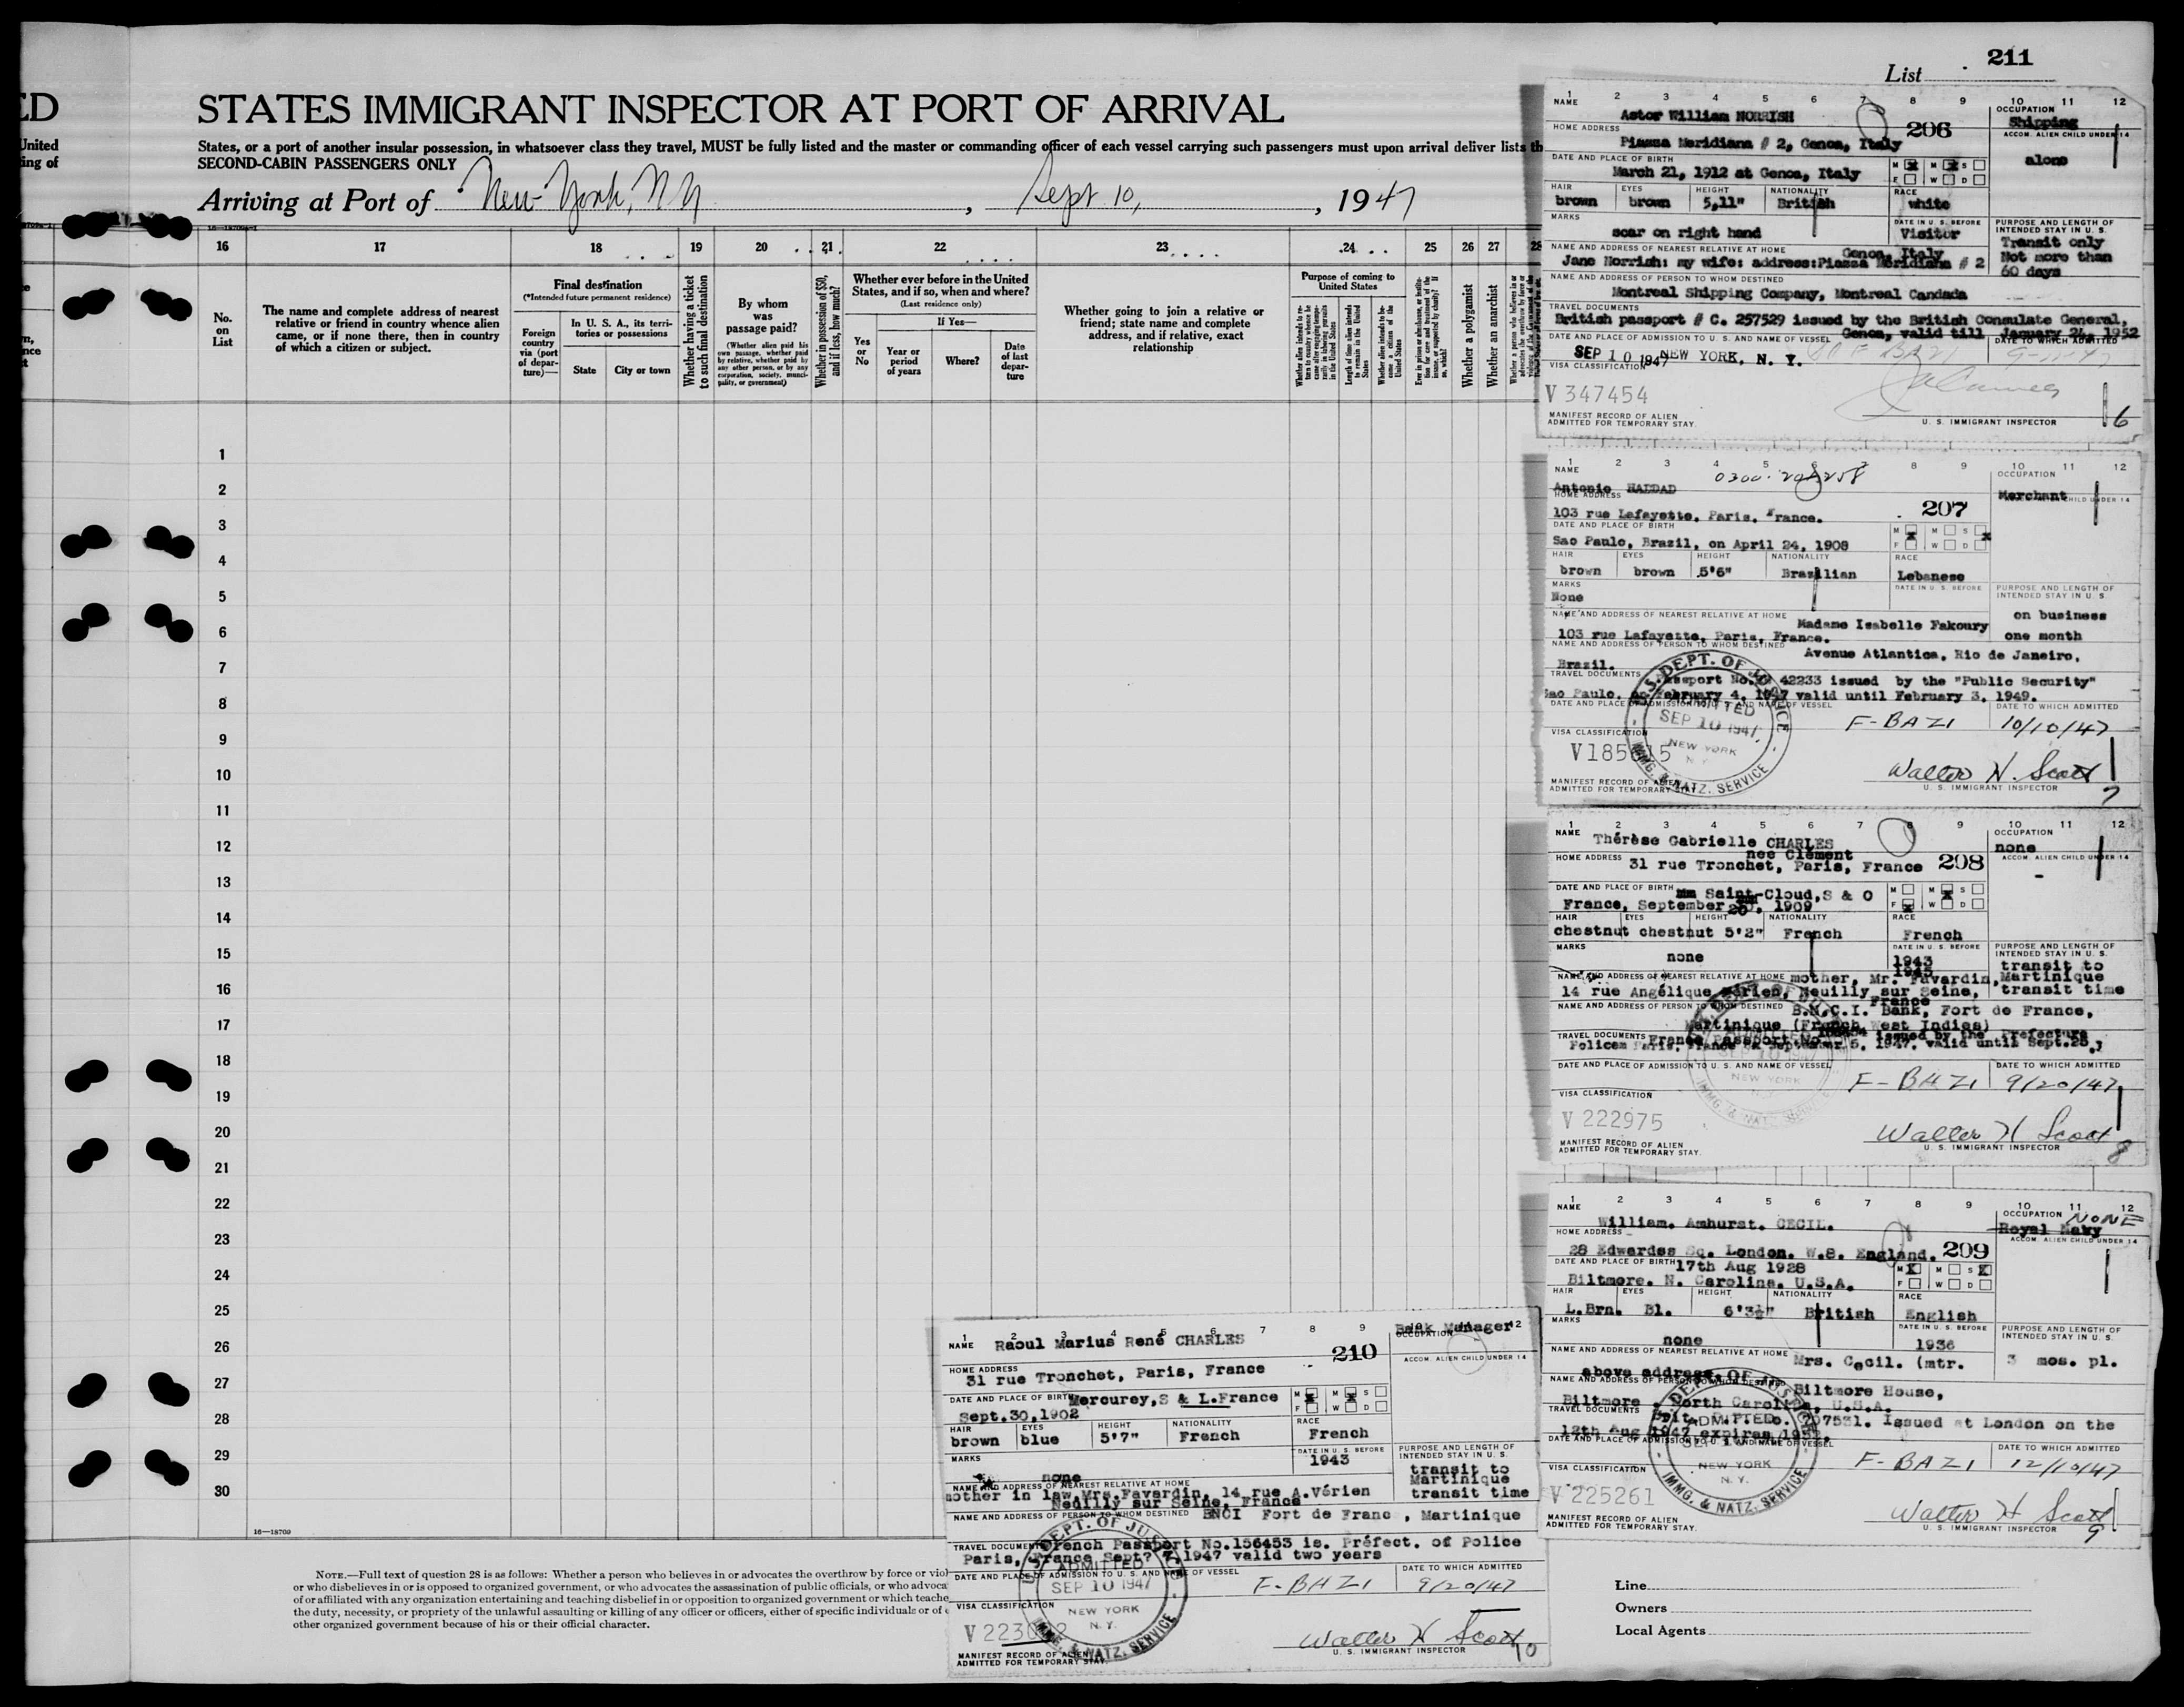 211
List
ED
STATES IMMIGRANT INSPECTOR AT PORT OF ARRIVAL
United
ing of
States, or a port of another insular possession, in whatsoever class they travel, MUST be fully listed and the master or commanding officer of each vessel carrying such passengers must upon arrival deliver lists th
SECOND-CABIN PASSENGERS ONLY
Arriving at Port of New York, N Y , Sept 10, , 1947
16 17 18 19 20 21 22 23 24 25 26 27 28
No. on List
The name and complete address of nearest relative or friend in country whence alien came, or if none there, then in country of which a citizen or subject.
Final destination
(*Intended future permanent residence)
Foreign country via (port of departure)—
In U. S. A., its territories or possessions
State
City or town
Whether having a ticket to such final destination
By whom was passage paid?
(Whether alien paid his own passage, whether paid by relative, whether paid by any other person, or by any corporation, society, municipality, or government)
Whether in possession of $50, and if less, how much?
Whether ever before in the United States, and if so, when and where?
(Last residence only)
If Yes—
Yes or No
Year or period of years
Where?
Date of last departure
Whether going to join a relative or friend; state name and complete address, and if relative, exact relationship
Purpose of coming to United States
Length of time alien intends to remain in the United States
Whether alien intends to become a citizen of the United States
Whether a polygamist
Whether an anarchist
1
2
3
4
5
6
7
8
9
10
11
12
13
14
15
16
17
18
19
20
21
22
23
24
25
26
27
28
29
30
16—18709
NOTE.—Full text of question 28 is as follows: Whether a person who believes in or advocates the overthrow by force or viol
or who disbelieves in or is opposed to organized government, or who advocates the assassination of public officials, or who advoca
of or affiliated with any organization entertaining and teaching disbelief in or opposition to organized government or which teache
the duty, necessity, or propriety of the unlawful assaulting or killing of any officer or officers, either of specific individuals or of
other organized government because of his or their official character.
1 2 3 4 5 6 7 8 9 10 11 12
NAME Astor William NORRISH
206
OCCUPATION Shipping
HOME ADDRESS
Piazza Meridiana # 2, Genoa, Italy
ACCOM. ALIEN CHILD UNDER 14
alone
DATE AND PLACE OF BIRTH
March 21, 1912 at Genoa, Italy
M M S
F W D
HAIR EYES HEIGHT NATIONALITY RACE
brown brown 5,11" British white
MARKS
scar on right hand
DATE IN U. S. BEFORE
Visitor
PURPOSE AND LENGTH OF INTENDED STAY IN U. S.
Transit only
Not more than
60 days
NAME AND ADDRESS OF NEAREST RELATIVE AT HOME Genoa, Italy
Jane Norrish: my wife: address:Piazza Meridiana # 2
NAME AND ADDRESS OF PERSON TO WHOM DESTINED
Montreal Shipping Company, Montreal Candada
TRAVEL DOCUMENTS
British passport # C. 257529 issued by the British Consulate General,
Genoa, valid till January 24, 1952
DATE AND PLACE OF ADMISSION TO U. S. AND NAME OF VESSEL
DATE TO WHICH ADMITTED
SEP 10 1947 NEW YORK, N. Y.
VISA CLASSIFICATION
V 347454
MANIFEST RECORD OF ALIEN
ADMITTED FOR TEMPORARY STAY.
U. S. IMMIGRANT INSPECTOR
6
1 2 3 4 5 6 8 9 10 11 12
NAME
Antonio HADDAD
OCCUPATION
Merchant
HOME ADDRESS
207
103 rue Lafayette, Paris, France.
DATE AND PLACE OF BIRTH
Sao Paulo, Brazil, on April 24, 1908
M M S
F W D
HAIR EYES HEIGHT NATIONALITY RACE
brown brown 5'6" Brazilian Lebanese
MARKS
None
DATE IN U. S. BEFORE
PURPOSE AND LENGTH OF INTENDED STAY IN U. S.
on business
one month
NAME AND ADDRESS OF NEAREST RELATIVE AT HOME
Madame Isabelle Fakoury
103 rue Lafayette, Paris, France.
NAME AND ADDRESS OF PERSON TO WHOM DESTINED
Avenue Atlantica, Rio de Janeiro,
Brazil.
TRAVEL DOCUMENTS
Passport No. 42233 issued by the "Public Security"
Sao Paulo, on February 4, 1947 valid until February 3, 1949.
DATE AND PLACE OF ADMISSION TO U. S. AND NAME OF VESSEL
F-BAZI
DATE TO WHICH ADMITTED
10/10/47
U. S. DEPT. OF JUSTICE
ADMITTED
SEP 10 1947
NEW YORK
N. Y.
IMMG. & NATZ. SERVICE
VISA CLASSIFICATION
V185615
Walter H. Scott
MANIFEST RECORD OF ALIEN
ADMITTED FOR TEMPORARY STAY
U. S. IMMIGRANT INSPECTOR
7
1 2 3 4 5 6 7 8 9 10 11 12
NAME Thérèse Gabrielle CHARLES
nee Clément
OCCUPATION
none
HOME ADDRESS 31 rue Tronchet, Paris, France
208
ACCOM. ALIEN CHILD UNDER 14
-
DATE AND PLACE OF BIRTH Saint-Cloud,S & O
France, September 20, 1909
M M S
F W D
HAIR EYES HEIGHT NATIONALITY RACE
chestnut chestnut 5'2" French French
MARKS
none
DATE IN U. S. BEFORE
1943
PURPOSE AND LENGTH OF INTENDED STAY IN U. S.
transit to
Martinique
transit time
NAME AND ADDRESS OF NEAREST RELATIVE AT HOME mother, Mr. Favardin,
14 rue Angélique Vérien, Neuilly sur Seine,
France
NAME AND ADDRESS OF PERSON TO WHOM DESTINED
B.N.C.I. Bank, Fort de France,
Martinique (French West Indies)
TRAVEL DOCUMENTS France Passport No. issued by the Prefecture
Police Paris, France September 5, 1947, valid until Sept.
DATE AND PLACE OF ADMISSION TO U. S. AND NAME OF VESSEL
F-BAZI
DATE TO WHICH ADMITTED
9/20/47
SEP 10 1947
NEW YORK
VISA CLASSIFICATION
V 222975
Walter H Scott
MANIFEST RECORD OF ALIEN
ADMITTED FOR TEMPORARY STAY.
U. S. IMMIGRANT INSPECTOR
8
1 2 3 4 5 6 7 8 9 10 11 12
NAME
William. Amhurst. CECIL.
OCCUPATION NONE
Royal Navy
HOME ADDRESS
28 Edwardes Sq. London. W.8. England.
209
ACCOM. ALIEN CHILD UNDER 14
DATE AND PLACE OF BIRTH 17th Aug 1928
Biltmore. N. Carolina. U.S.A.
M M S
F W D
HAIR EYES HEIGHT NATIONALITY RACE
L.Brn. Bl. 6'3½" British English
MARKS
none
DATE IN U. S. BEFORE
1936
PURPOSE AND LENGTH OF INTENDED STAY IN U. S.
3 mos. pl.
NAME AND ADDRESS OF NEAREST RELATIVE AT HOME Mrs. Cecil. (mtr.
above address.
NAME AND ADDRESS OF PERSON TO WHOM DESTINED Biltmore House,
Biltmore . North Carolina, U.S.A.
TRAVEL DOCUMENTS
Brit. No. 207531. Issued at London on the
12th Aug 1947 expires 1952.
DATE AND PLACE OF ADMISSION TO U. S. AND NAME OF VESSEL
F-BAZI
DATE TO WHICH ADMITTED
12/10/47
DEPT. OF JUSTICE
ADMITTED
NEW YORK
N. Y.
IMMG. & NATZ. SERVICE
VISA CLASSIFICATION
V 225261
Walter H Scott
MANIFEST RECORD OF ALIEN
ADMITTED FOR TEMPORARY STAY.
U. S. IMMIGRANT INSPECTOR
9
1 2 3 4 5 6 7 8 9 12
NAME Raoul Marius René CHARLES
Bank Manager
OCCUPATION
210
HOME ADDRESS
31 rue Tronchet, Paris, France
ACCOM. ALIEN CHILD UNDER 14
DATE AND PLACE OF BIRTH Mercurey,S & L.France
Sept.30,1902
M M S
F W D
HAIR EYES HEIGHT NATIONALITY RACE
brown blue 5'7" French French
MARKS
none
DATE IN U. S. BEFORE
1943
PURPOSE AND LENGTH OF INTENDED STAY IN U. S.
transit to
Martinique
transit time
NAME AND ADDRESS OF NEAREST RELATIVE AT HOME
mother in law,Mrs.Favardin, 14 rue A.Vérien
Neuilly sur Seine, France
NAME AND ADDRESS OF PERSON TO WHOM DESTINED BNCI Fort de Franc , Martinique
TRAVEL DOCUMENTS French Passport No.156453 is. Préfect. of Police
Paris, France Sept? 1947 valid two years
DATE AND PLACE OF ADMISSION TO U. S. AND NAME OF VESSEL
F-BAZI
DATE TO WHICH ADMITTED
9/20/47
DEPT. OF JUSTICE
ADMITTED
SEP 10 1947
NEW YORK
N. Y.
IMMG. & NATZ. SERVICE
VISA CLASSIFICATION
Walter H Scott
MANIFEST RECORD OF ALIEN
ADMITTED FOR TEMPORARY STAY
U. S. IMMIGRANT INSPECTOR
10
Line
Owners
Local Agents